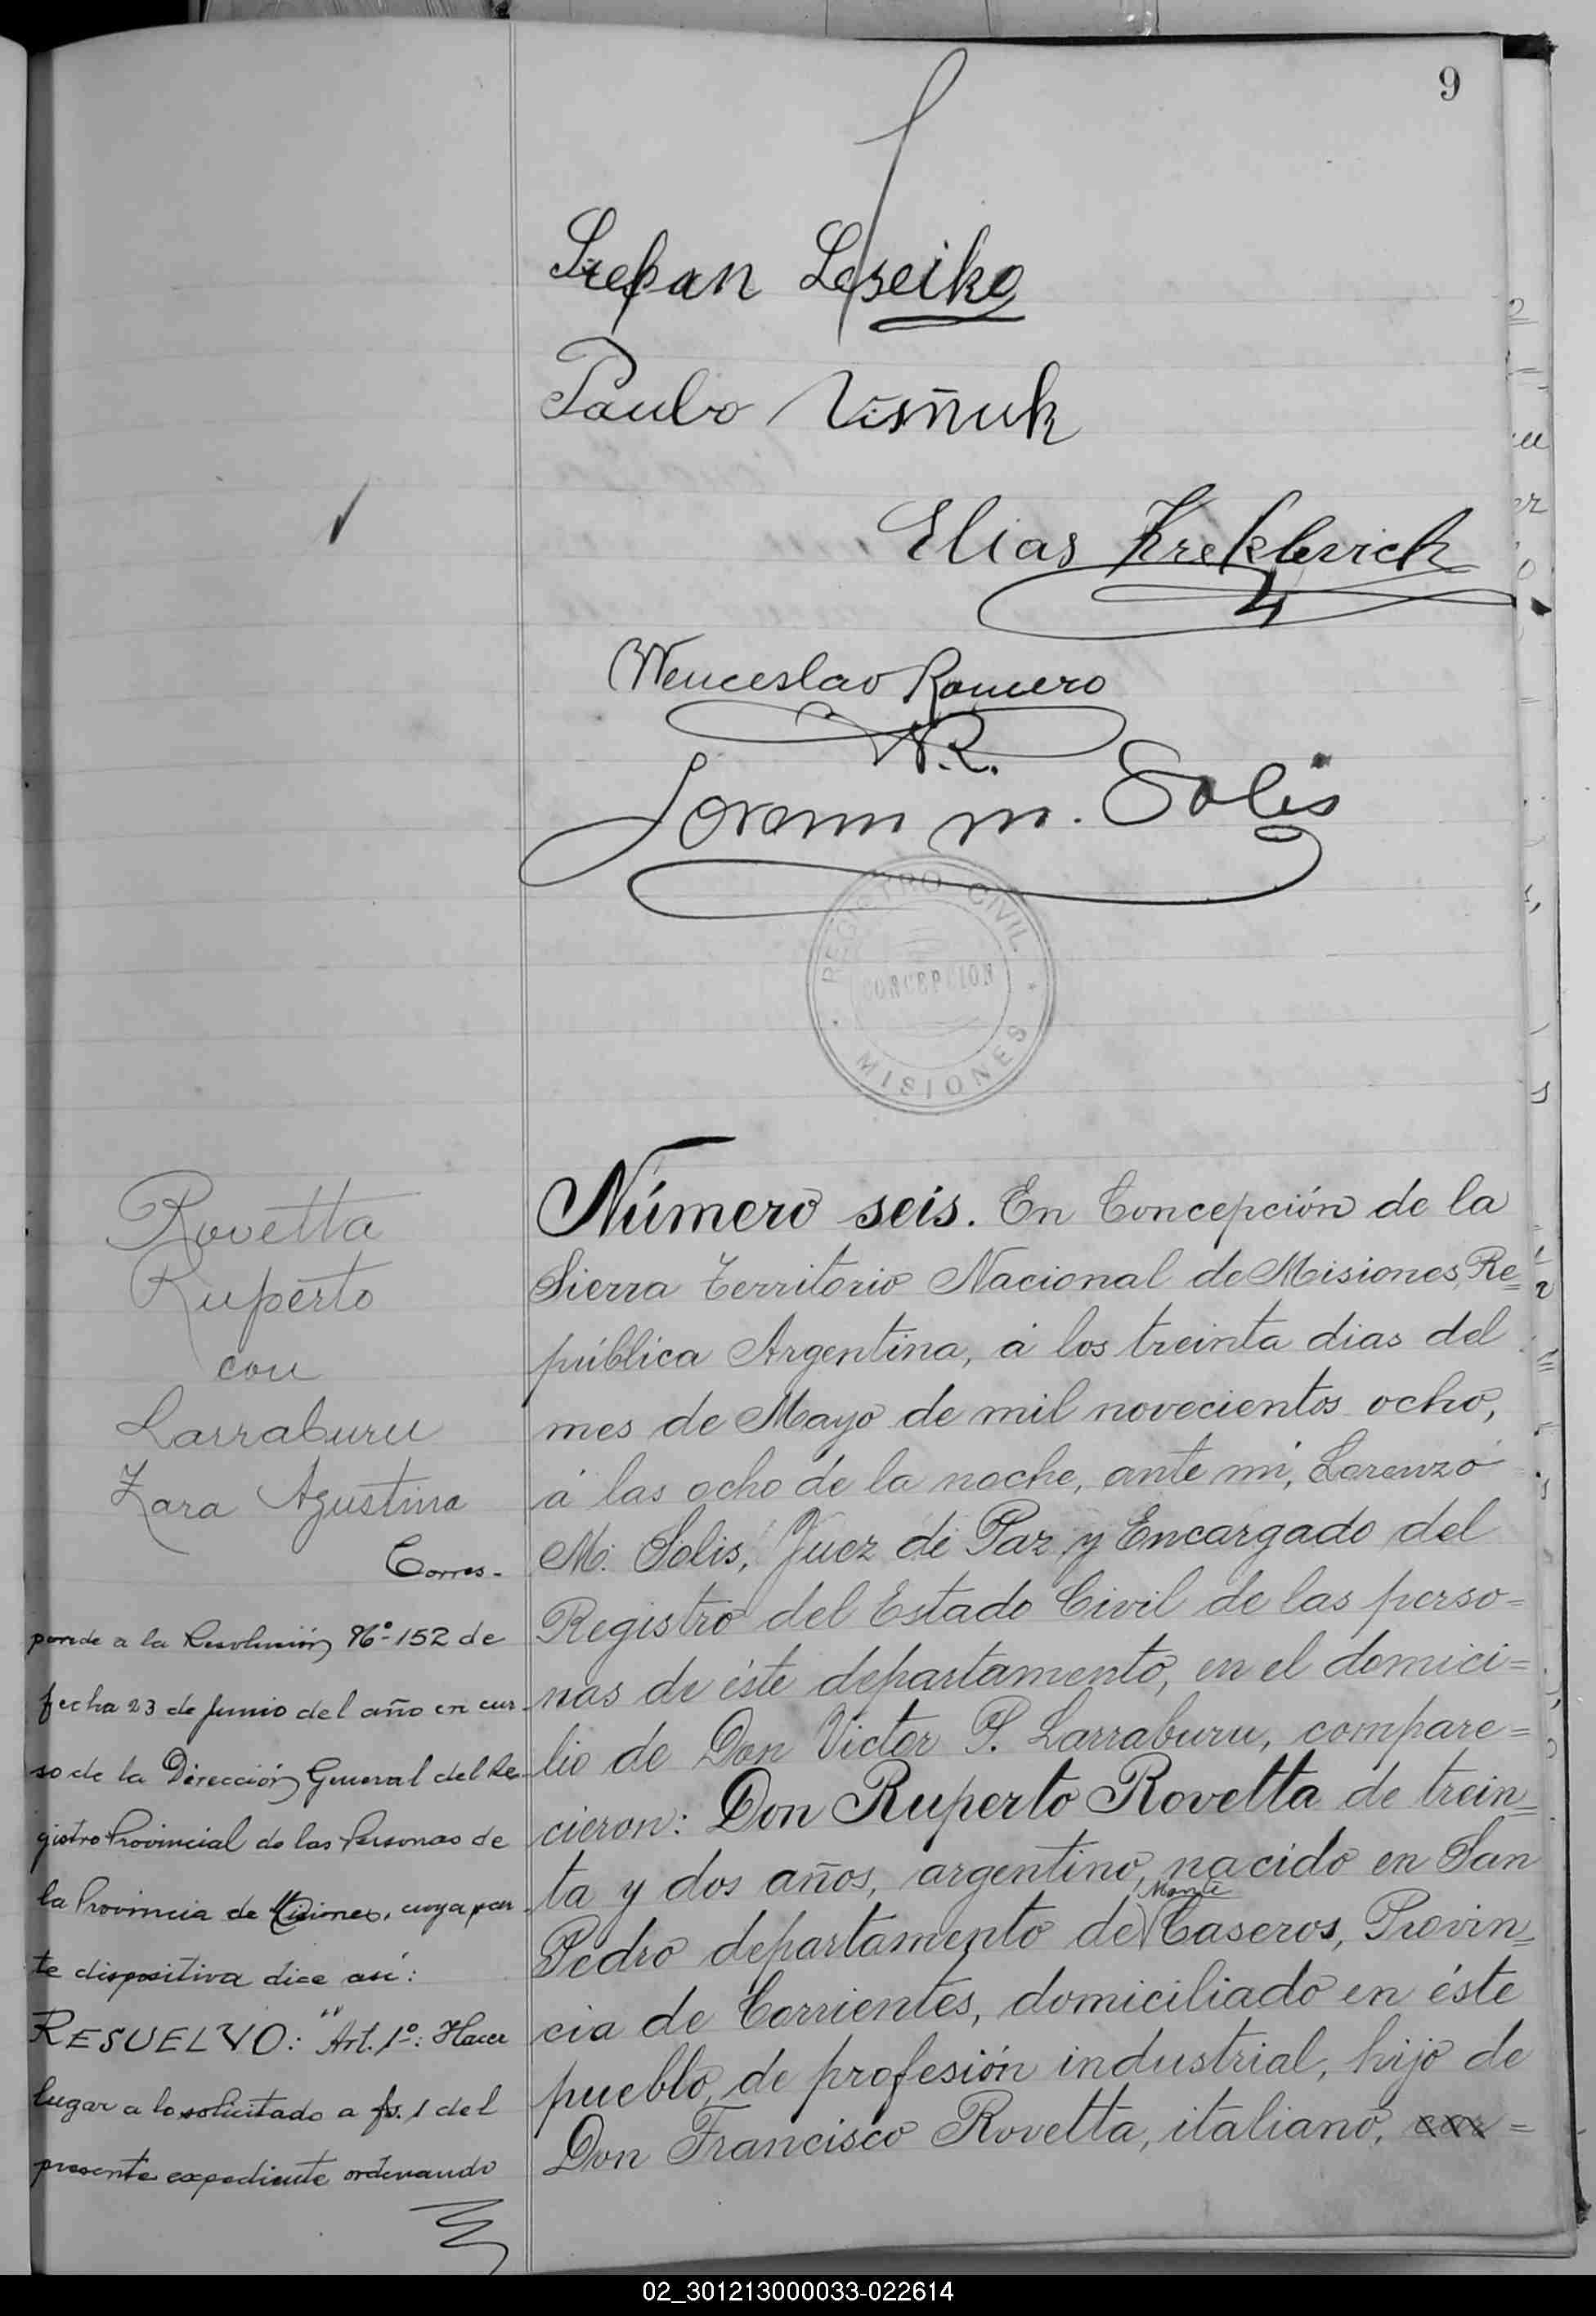 9
Stepan Leseiko
Paulo Visñuk
Elias Kreklevich
Wenceslao Romero
W.R.
Lorenzo M. Solis
REGISTRO CIVIL
CONCEPCION
MISIONES
Rovetta
Ruperto
con
Larraburu
Zara Agustina
Corres-
ponde a la Resolución Nº-152 de
fecha 23 de Junio del año en cur-
so de la Dirección General del Re
gistro Provincial de las Personas de
la Provincia de Misiones, cuya par-
te dispositiva dice así:
RESUELVO: "Art. 1º: Hacer
lugar a lo solicitado a fs. 1 del
presente expediente ordenando
Número seis. En Concepción de la
Sierra Territorio Nacional de Misiones, Re=
pública Argentina, á los treinta dias del
mes de Mayo de mil novecientos ocho,
á las ocho de la noche, ante mi, Lorenzo
M. Solis, Juez de Paz y Encargado del
Registro del Estado Civil de las perso=
nas de éste departamento, en el domici=
lio de Don Victor P. Larraburu, compare=
cieron: Don Ruperto Rovetta de trein=
ta y dos años, argentino, nacido en San
Monte
Pedro departamento de Caseros, Provin=
cia de Corrientes, domiciliado en éste
pueblo, de profesión industrial, hijo de
Don Francisco Rovetta, italiano, =
02_301213000033-022614